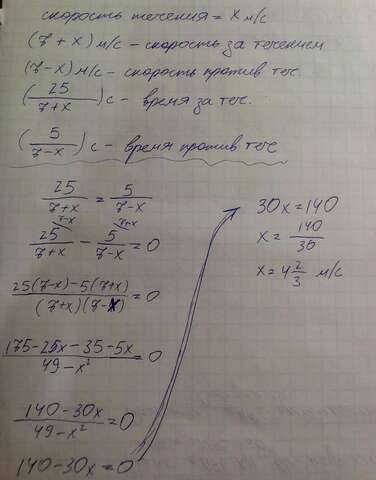 скорость течения = x м/с
(7 + x) м/с - скорость за течением
(7 - x) м/с - скорость против теч.
(25/(7+x)) с - время за теч.
(5/(7-x)) с - время против теч
25/(7+x) = 5/(7-x)
7-x 7+x
25/(7+x) - 5/(7-x) = 0
(25(7-x) - 5(7+x))/((7+x)(7-x)) = 0
(175 - 25x - 35 - 5x)/(49 - x²) = 0
(140 - 30x)/(49 - x²) = 0
140 - 30x = 0
30x = 140
x = 140/30
x = 4 2/3 м/с